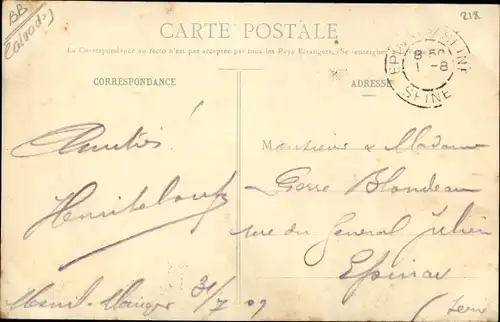 BB
(Calvados)
218
CARTE POSTALE
La Correspondance au recto n'est pas acceptée par tous les Pays Étrangers. (Se renseigner
CORRESPONDANCE
ADRESSE
8 50
1 -8
SEINE
Amitiés!
Mesnil-Mauger 31/7 09
Monsieur & Madame
Blondeau
rue du Général Julien
Epinay